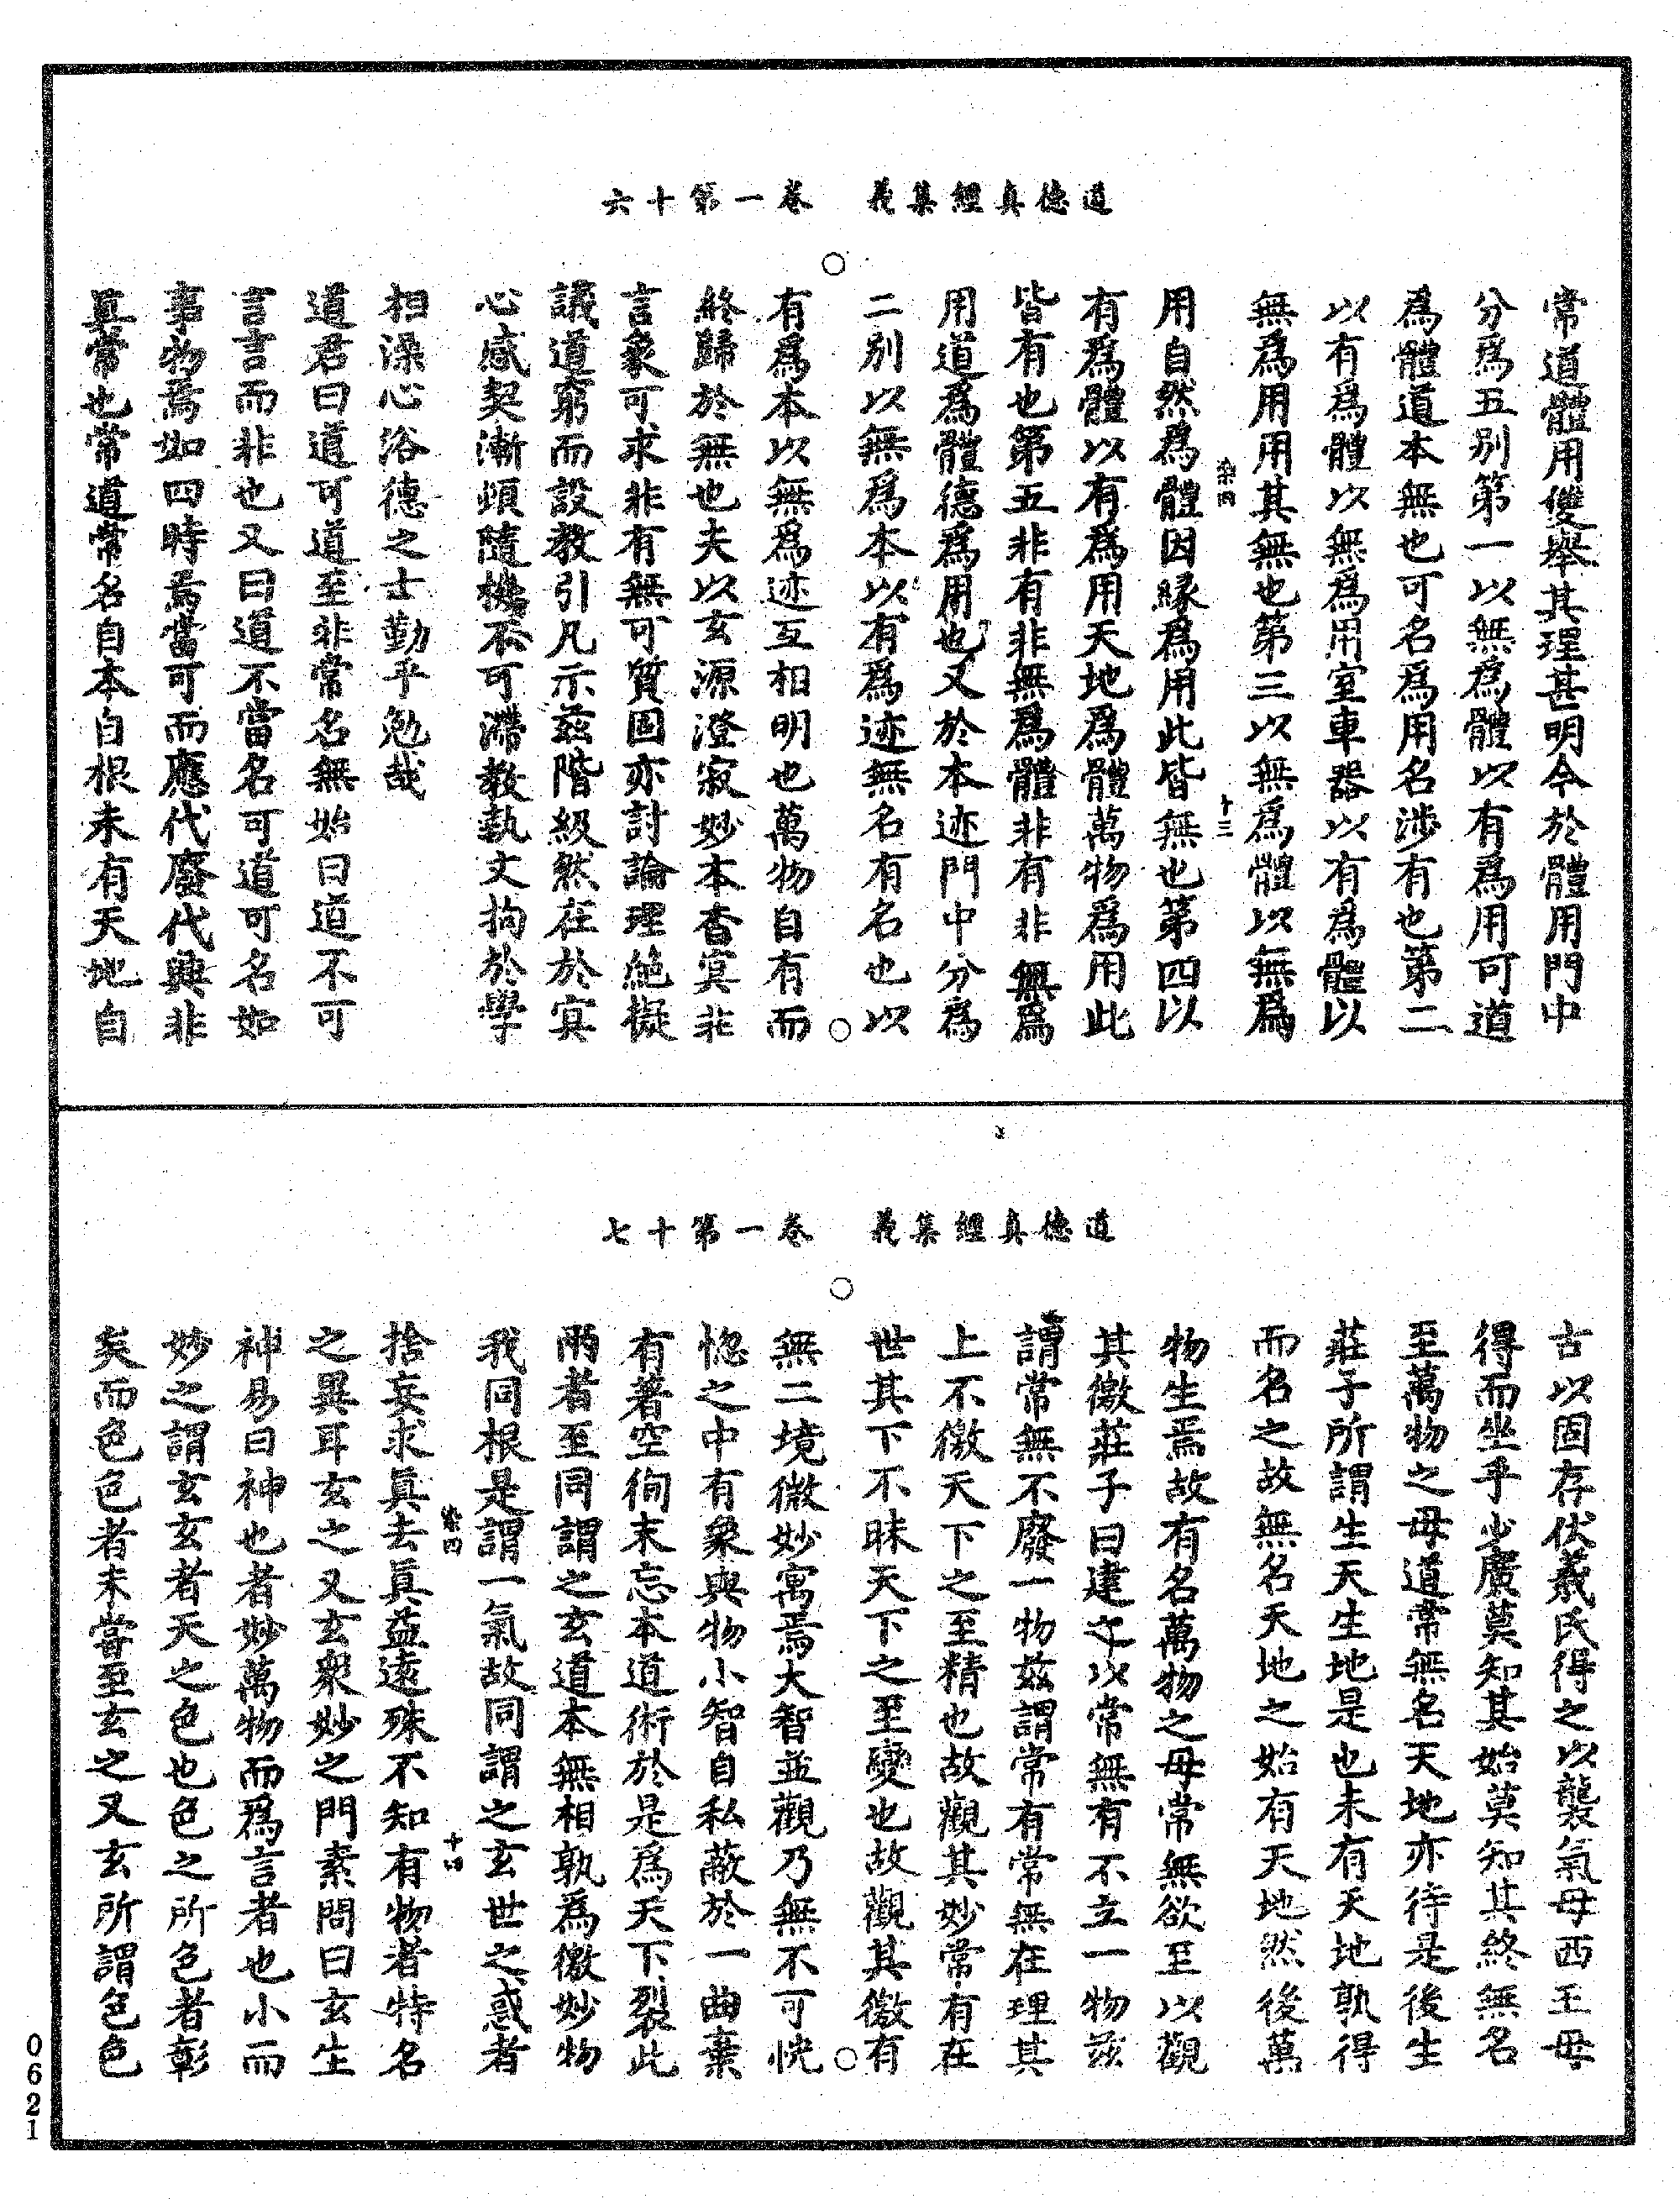 道德真經集義　卷一第十六
常道體用雙舉其理甚明今於體用門中
分爲五别第一以無爲體以有爲用可道
爲體道本無也可名爲用名涉有也第二
以有爲體以無爲用室車器以有爲體以
無爲用用其無也第三以無爲體以無爲
染四　十三
用自然爲體因緣爲用此皆無也第四以
有爲體以有爲用天地爲體萬物爲用此
皆有也第五非有非無爲體非有非無爲
用道爲體德爲用也又於本迹門中分爲
二别以無爲本以有爲迹無名有名也以
有爲本以無爲迹互相明也萬物自有而
終歸於無也夫以玄源澄寂妙本杳冥非
言象可求非有無可質固亦討論理絶擬
議道窮而設教引凡示兹階級然在於冥
心感契漸頓隨機不可滯教執文拘於學
相澡心浴德之士勤乎勉哉
道君曰道可道至非常名無始曰道不可
言言而非也又曰道不當名可道可名如
事物焉如四時焉當可而應代廢代興非
真常也常道常名自本自根未有天地自
道德真經集義　卷一第十七
古以固存伏羲氏得之以襲氣母西王母
得而坐乎少廣莫知其始莫知其終無名
至萬物之母道常無名天地亦待是後生
莊子所謂生天生地是也未有天地孰得
而名之故無名天地之始有天地然後萬
物生焉故有名萬物之母常無欲至以觀
其徼莊子曰建之以常無有不立一物兹
謂常無不廢一物兹謂常有常無在理其
上不徼天下之至精也故觀其妙常有在
世其下不昧天下之至變也故觀其徼有
無二境微妙寓焉大智並觀乃無不可恍
惚之中有象與物小智自私蔽於一曲棄
有著空徇末忘本道術於是爲天下裂此
兩者至同謂之玄道本無相孰爲徼妙物
我同根是謂一氣故同謂之玄世之惑者
染四　十四
捨妄求真去真益遠殊不知有物者特名
之異耳玄之又玄衆妙之門素問曰玄生
神易曰神也者妙萬物而爲言者也小而
妙之謂玄玄者天之色也色之所色者彰
矣而色色者未嘗至玄之又玄所謂色色
0621